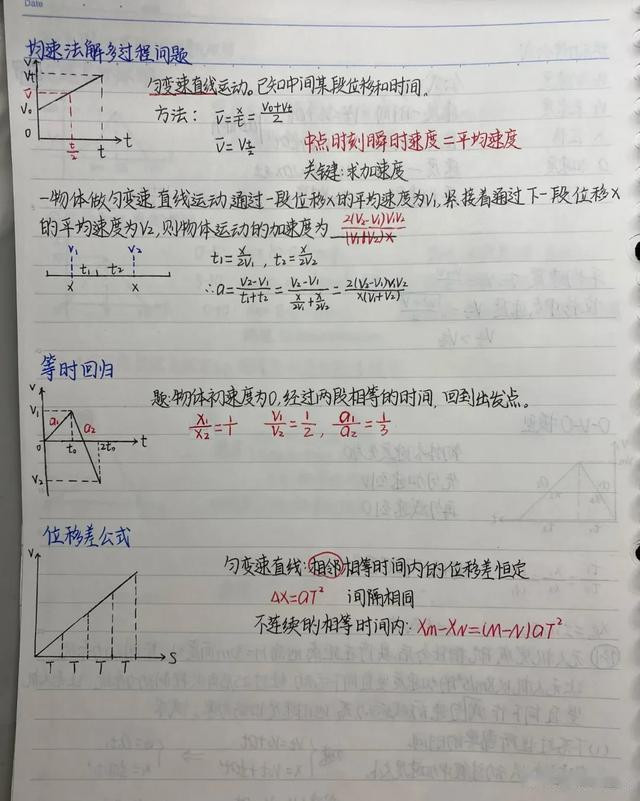 Date
均速法解多过程问题
V
Vt
V̄
V₀
0
t/2
t
t
匀变速直线运动。已知中间某段位移和时间。
方法: V̄=x/t=(V₀+Vt)/2
V̄=V t/2 中点时刻瞬时速度=平均速度
关键:求加速度
一物体做匀变速直线运动,通过一段位移X的平均速度为V₁,紧接着通过下一段位移X
的平均速度为V₂,则物体运动的加速度为 2(V₂-V₁)V₁V₂/(V₁+V₂)X
V₁ V₂
t₁ t₂
x x
t₁=x/2V₁, t₂=x/2V₂
∴a=(V₂-V₁)/(t₁+t₂)=(V₂-V₁)/(x/2V₁+x/2V₂)=2(V₂-V₁)V₁V₂/x(V₁+V₂)
等时回归
V
V₁
a₁
a₂
0
t₀
2t₀
t
V₂
题:物体初速度为0,经过两段相等的时间,回到出发点。
x₁/x₂=1/1 V₁/V₂=1/2, a₁/a₂=1/3
位移差公式
V
T T T T S
匀变速直线:相邻相等时间内的位移差恒定
ΔX=aT² 间隔相同
不连续的相等时间内: Xm-XN=(M-N)aT²